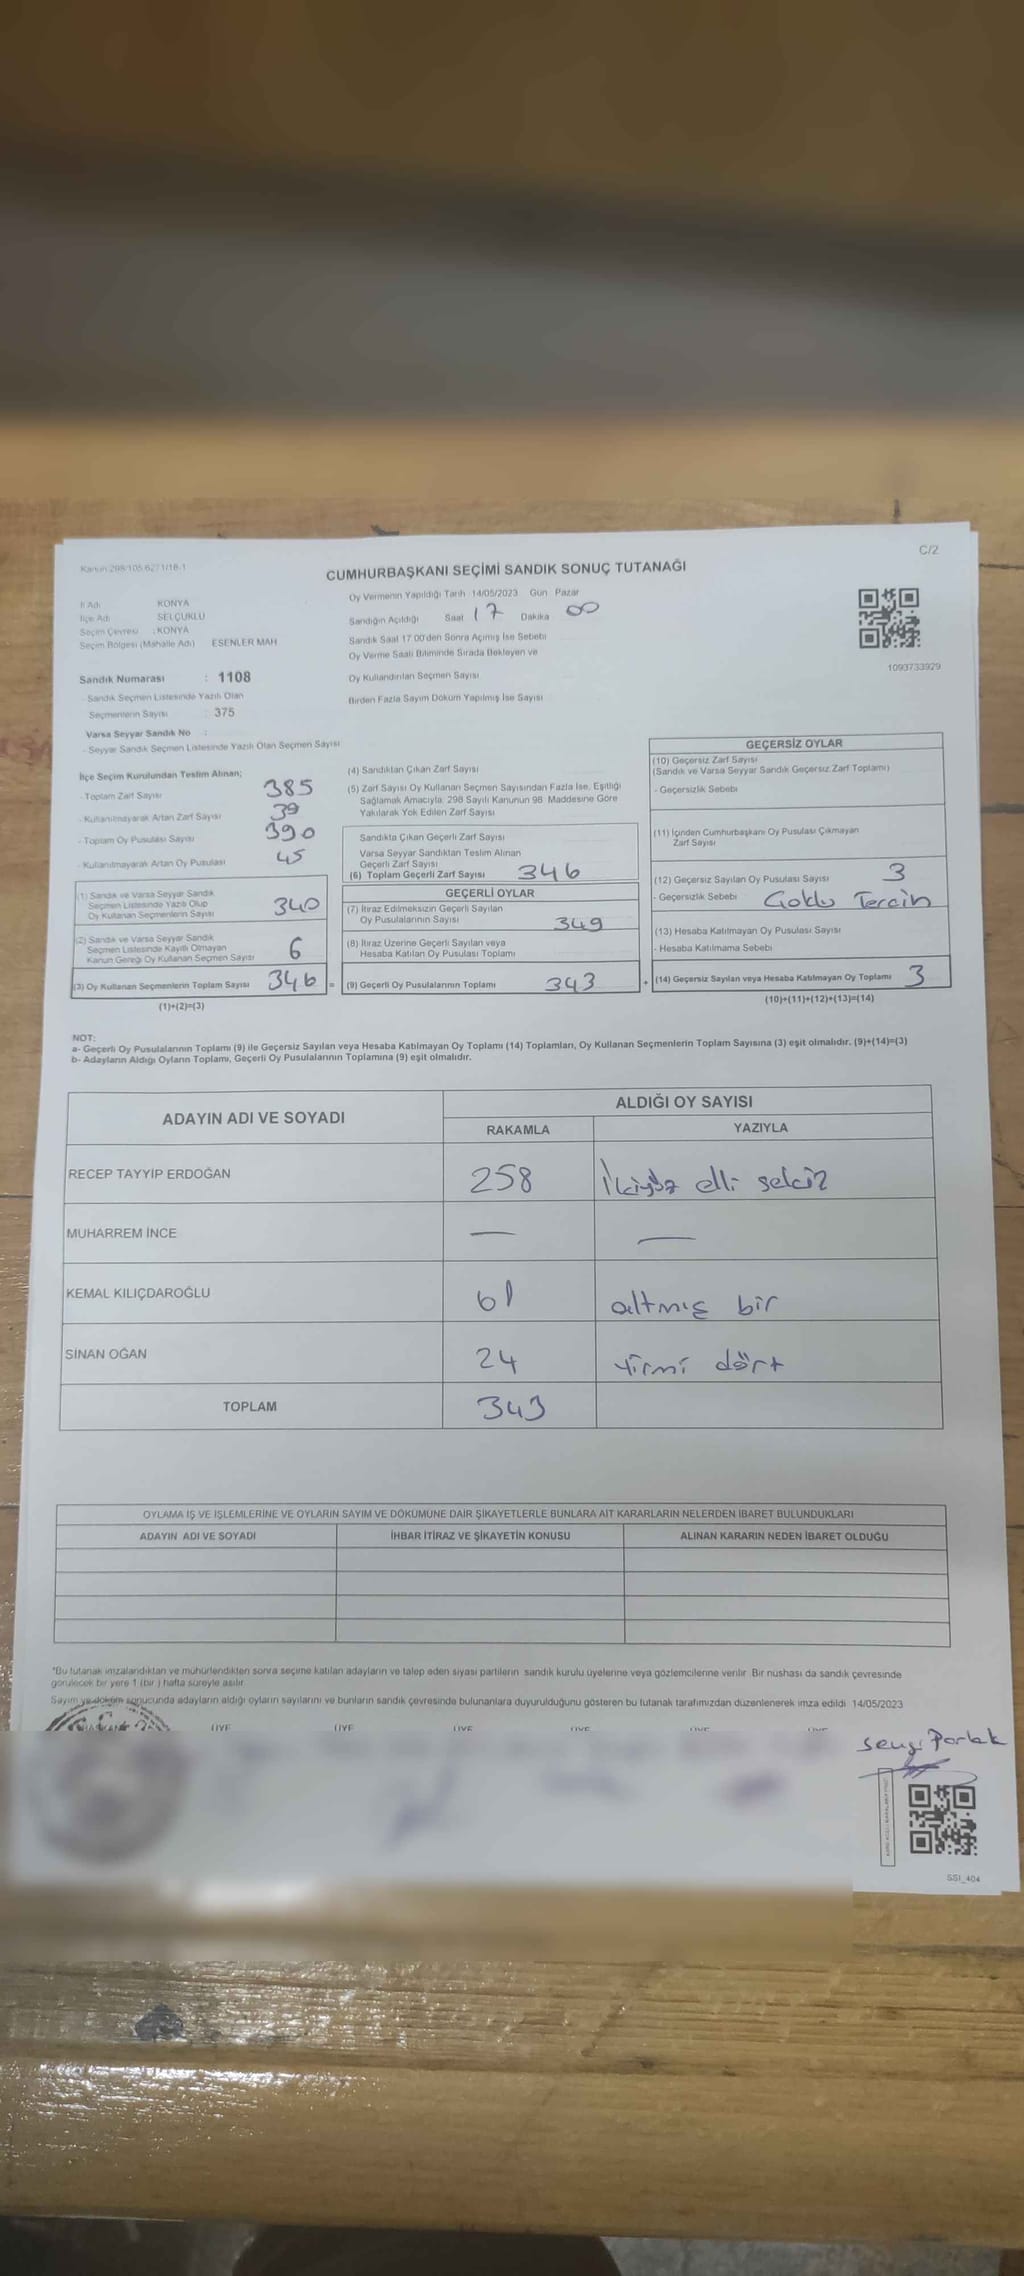 C/2
Kanun:298/105 6271/18-1
CUMHURBAŞKANI SEÇİMİ SANDIK SONUÇ TUTANAĞI
İl Adı : KONYA
İlçe Adı : SELÇUKLU
Seçim Çevresi : KONYA
Seçim Bölgesi (Mahalle Adı) ESENLER MAH
Sandık Numarası : 1108
- Sandık Seçmen Listesinde Yazılı Olan
Seçmenlerin Sayısı : 375
Varsa Seyyar Sandık No :
- Seyyar Sandık Seçmen Listesinde Yazılı Olan Seçmen Sayısı
Oy Vermenin Yapıldığı Tarih 14/05/2023 Gün Pazar
Sandığın Açıldığı Saat 17 Dakika 00
Sandık Saat 17.00'den Sonra Açılmış İse Sebebi
Oy Verme Saati Bitiminde Sırada Bekleyen ve
Oy Kullandırılan Seçmen Sayısı
Birden Fazla Sayım Döküm Yapılmış İse Sayısı
1093733929
İlçe Seçim Kurulundan Teslim Alınan;
- Toplam Zarf Sayısı 385
- Kullanılmayarak Artan Zarf Sayısı 39
- Toplam Oy Pusulası Sayısı 390
- Kullanılmayarak Artan Oy Pusulası 45
(1) Sandık ve Varsa Seyyar Sandık
Seçmen Listesinde Yazılı Olup
Oy Kullanan Seçmenlerin Sayısı 340
(2) Sandık ve Varsa Seyyar Sandık
Seçmen Listesinde Kayıtlı Olmayan
Kanun Gereği Oy Kullanan Seçmen Sayısı 6
(3) Oy Kullanan Seçmenlerin Toplam Sayısı 346 =
(1)+(2)=(3)
(4) Sandıktan Çıkan Zarf Sayısı
(5) Zarf Sayısı Oy Kullanan Seçmen Sayısından Fazla İse, Eşitliği
Sağlamak Amacıyla; 298 Sayılı Kanunun 98. Maddesine Göre
Yakılarak Yok Edilen Zarf Sayısı
Sandıkta Çıkan Geçerli Zarf Sayısı
Varsa Seyyar Sandıktan Teslim Alınan
Geçerli Zarf Sayısı
(6) Toplam Geçerli Zarf Sayısı 346
GEÇERLİ OYLAR
(7) İtiraz Edilmeksizin Geçerli Sayılan
Oy Pusulalarının Sayısı 349
(8) İtiraz Üzerine Geçerli Sayılan veya
Hesaba Katılan Oy Pusulası Toplamı
(9) Geçerli Oy Pusulalarının Toplamı 343 +
GEÇERSİZ OYLAR
(10) Geçersiz Zarf Sayısı
(Sandık ve Varsa Seyyar Sandık Geçersiz Zarf Toplamı)
- Geçersizlik Sebebi
(11) İçinden Cumhurbaşkanı Oy Pusulası Çıkmayan
Zarf Sayısı
(12) Geçersiz Sayılan Oy Pusulası Sayısı 3
- Geçersizlik Sebebi Çoklu Tercih
(13) Hesaba Katılmayan Oy Pusulası Sayısı
- Hesaba Katılmama Sebebi
(14) Geçersiz Sayılan veya Hesaba Katılmayan Oy Toplamı 3
(10)+(11)+(12)+(13)=(14)
NOT:
a- Geçerli Oy Pusulalarının Toplamı (9) ile Geçersiz Sayılan veya Hesaba Katılmayan Oy Toplamı (14) Toplamları, Oy Kullanan Seçmenlerin Toplam Sayısına (3) eşit olmalıdır. (9)+(14)=(3)
b- Adayların Aldığı Oyların Toplamı, Geçerli Oy Pusulalarının Toplamına (9) eşit olmalıdır.
ADAYIN ADI VE SOYADI ALDIĞI OY SAYISI
RAKAMLA YAZIYLA
RECEP TAYYİP ERDOĞAN 258 İkiyüz elli sekiz
MUHARREM İNCE — —
KEMAL KILIÇDAROĞLU 61 altmış bir
SİNAN OĞAN 24 yirmi dört
TOPLAM 343
OYLAMA İŞ VE İŞLEMLERİNE VE OYLARIN SAYIM VE DÖKÜMÜNE DAİR ŞİKAYETLERLE BUNLARA AİT KARARLARIN NELERDEN İBARET BULUNDUKLARI
ADAYIN ADI VE SOYADI İHBAR İTİRAZ VE ŞİKAYETİN KONUSU ALINAN KARARIN NEDEN İBARET OLDUĞU
*Bu tutanak imzalandıktan ve mühürlendikten sonra seçime katılan adayların ve talep eden siyasi partilerin sandık kurulu üyelerine veya gözlemcilerine verilir. Bir nüshası da sandık çevresinde
görülecek bir yere 1 (bir ) hafta süreyle asılır.
Sayım ve döküm sonucunda adayların aldığı oyların sayılarını ve bunların sandık çevresinde bulunanlara duyurulduğunu gösteren bu tutanak tarafımızdan düzenlenerek imza edildi. 14/05/2023
BAŞKAN ÜYE ÜYE ÜYE ÜYE ÜYE ÜYE
Sevgi Parlak
SSI_404